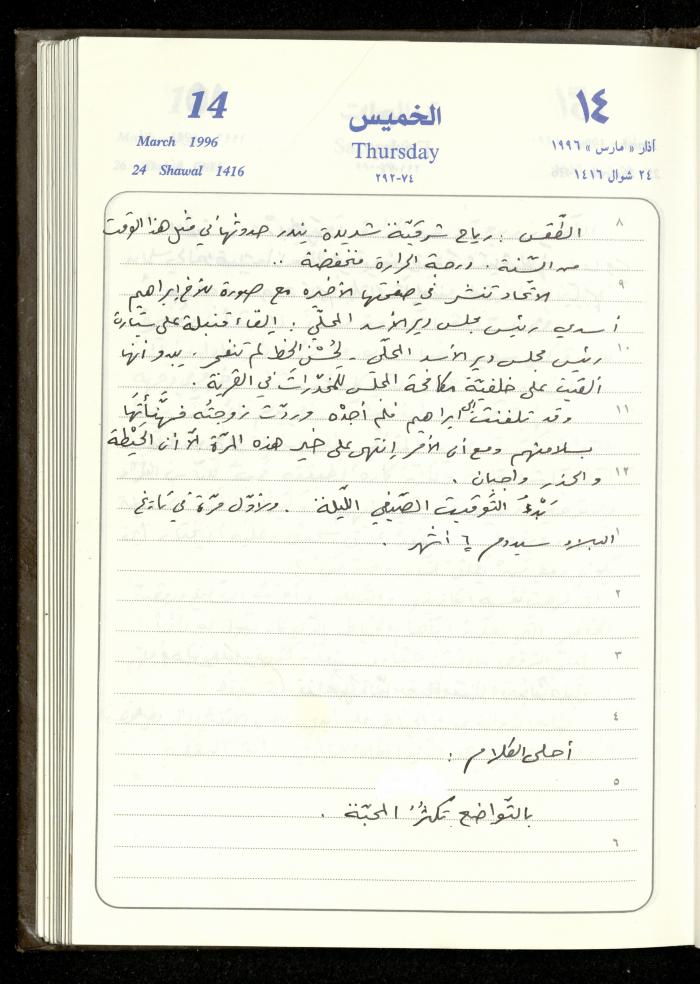 14
March 1996
24 Shawal 1416
الخميس
Thursday
٧٤-٢٩٢
١٤
آذار « مارس » ١٩٩٦
٢٤ شوال ١٤١٦
٨
الطّقس : رياح شرقيّة شديدة يندر حدوثها في مثل هذا الوقت
من السّنة . درجة الحرارة منخفضة ..
٩
الاتّحاد تنشر في صفحتها الأخيره مع صورة للأخ إبراهيم
أسدي رئيس مجلس دير الأسد المحلّي : إلقاء قنبلة على سيّارة
١٠
رئيس مجلس دير الأسد المحلّي - لحُسْن الحظ لم تنفجر . يبدو أنّها
ألقيت على خلفيّة مكافحة المجلس للمخدّرات في القرية .
١١
وقد تلفنت إلى ابراهيم فلم أجدْه وردّت زوجتُه فهنّأتُها
بسلامتهم ومع أن الأمر إنتهى على خير هذه المرّة الاّ أن الحَيْطة
١٢
والحذر واجبان .
بَدْءُ التّوقيت الصّيفي اللّيلة . ولأوّل مرّة في تاريخ
١
البلاد سيدوم ٦ أشهر .
٢
٣
٤
أحلى الكلام :
٥
بالتّواضع تَكثُرُ المحبّة .
٦